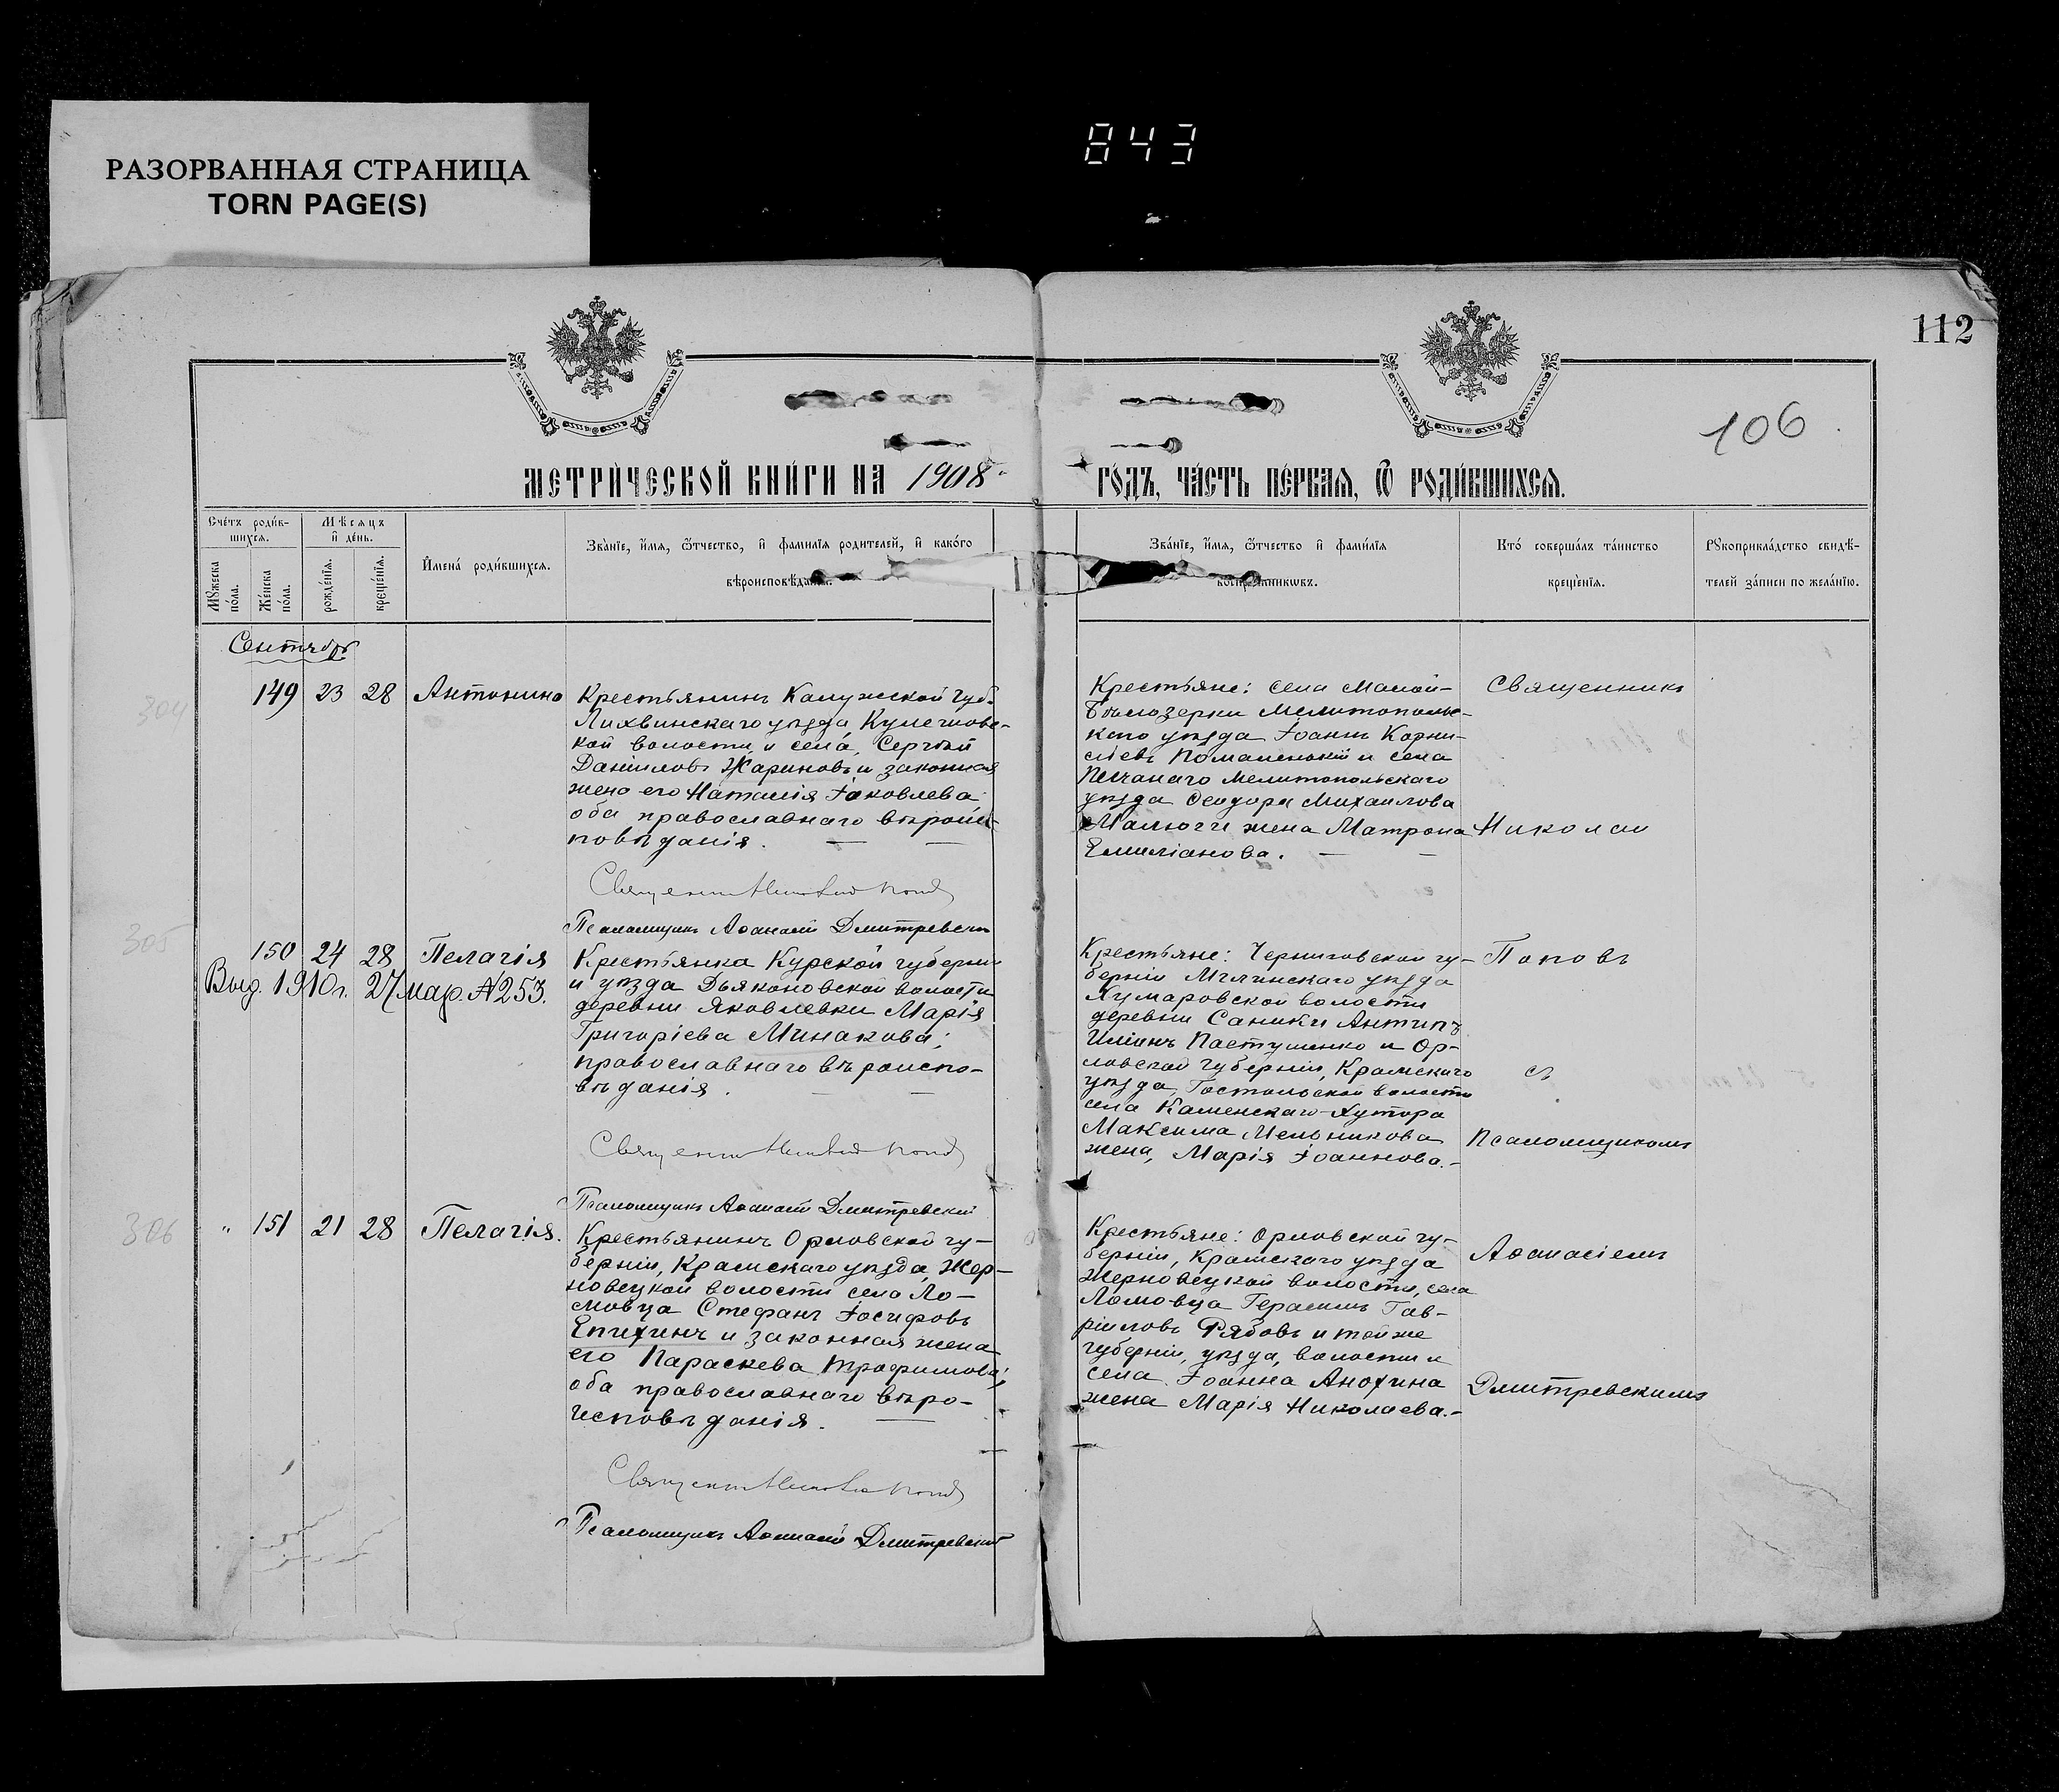 РАЗОРВАННАЯ СТРАНИЦА
TORN PAGE(S)
843
112
106
МЕТРИ́ЧЕСКОЙ КНИ́ГИ НА 1908
ГО́ДЪ, ЧА́СТЬ ПЕ́РВАЯ, Ѽ РОДИ́ВШИХСЯ.
Счетъ роди́в-
шихся.
Мѣсяцъ
и де́нь.
Мꙋжеска
по́ла.
Же́нска
по́ла.
рожде́нїѧ.
креще́нїѧ.
Имена́ роди́вшихся.
Зва́нїе, и́мѧ, ѻ́тчество, и фамилїѧ родителей, и како́го
вѣроисповѣданїѧ.
Зва́нїе, и́мѧ, ѻ́тчество и фами́лїѧ
воспрїемникѡвъ.
Кто́ соверша́лъ та́инство
креще́нїѧ.
Рꙋкоприкла́дство свидѣ-
телей за́писи по жела́нїю.
Сентябрь
304
149 23 28 Антонина
Крестьянинъ Калужской губ.
Лихвинскаго уѣзда,
кой волости и села, Сергѣй
Даніиловъ Жариновъ и законная
жена его Наталія Іаковлева
оба православнаго вѣроис-
повѣданія.
Священникъ Николай Поповъ
Псаломщикъ Аѳанасій Дмитревскій
Крестьяне: села Малой-
Бѣлозерки Мелитополь-
скаго уѣзда Іоаннъ Корни-
ліевъ Помаленькій и села
Песчанаго Мелитопольскаго
уѣзда Ѳеодора Михаилова
Малюги жена Матрона
Емиліанова.
Священникъ
Николай
305
150 24 28 Пелагія
Выд. 1910 г. 27 мар. № 253.
Крестьянка Курской губерніи
и уѣзда Дьяконовской волости
деревни Яковлевки Марія
Григоріева Минакова;
православнаго вѣроиспо-
вѣданія.
Священникъ Николай Поповъ
Псаломщикъ Аѳанасій Дмитревскій
Крестьяне: Черниговской гу-
берніи Мглинскаго уѣзда
волости
деревни Антипъ
Иліинъ Пастушенко и Ор-
ловской губерніи, Кромскаго
уѣзда, Гостомской волости
села Каменскаго-Хутора
Максима Мельникова
жена, Марія Іоаннова.-
Поповъ
съ
Псаломщикомъ
306
" 151 21 28 Пелагія.
Крестьянинъ Орловской гу-
берніи, Кромскаго уѣзда, Жер-
новецкой волости села Ло-
мовца Стефанъ Іосифовъ
Епихинъ и законная жена
его Параскева Трофимова;
оба православнаго вѣро-
исповѣданія.
Священникъ Николай Поповъ
Псаломщикъ Аѳанасій Дмитревскій
Крестьяне: Орловской гу-
берніи, Кромскаго уѣзда
Жерновецкой волости, села
Ломовца Герасимъ Гав-
ріиловъ Рябовъ и той же
губерніи, уѣзда, волости и
села Іоанна Анохина
жена Марія Николаева.-
Аѳанасіемъ
Дмитревскимъ